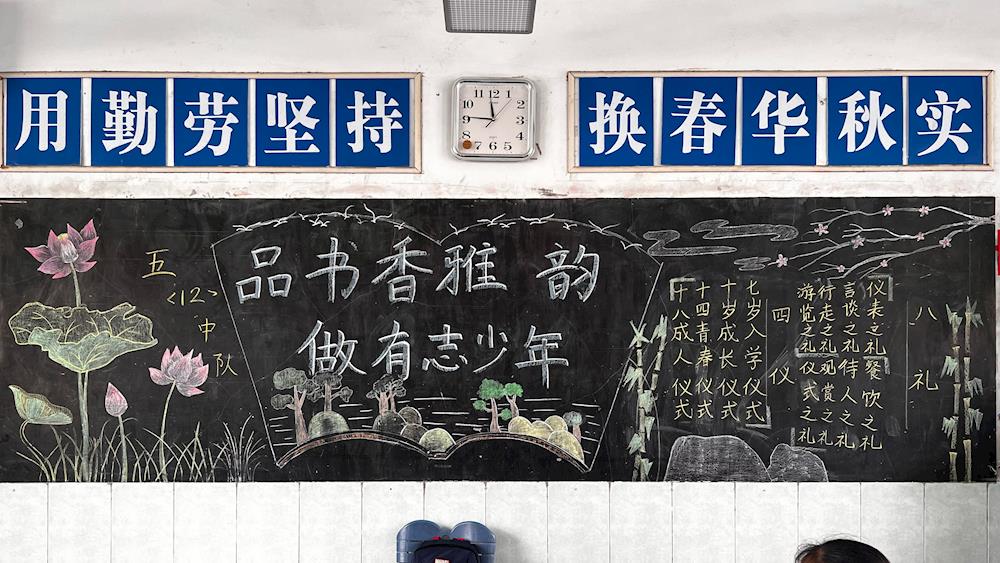 用勤劳坚持
换春华秋实
11 12 1
10 2
9 3
8 4
7 6 5
五
〈12〉
中
队
品书香雅韵
做有志少年
八礼
仪表之礼 餐饮之礼
言谈之礼 待人之礼
行走之礼 观赏之礼
游览之礼 仪式之礼
四仪
七岁入学仪式
十岁成长仪式
十四青春仪式
十八成人仪式